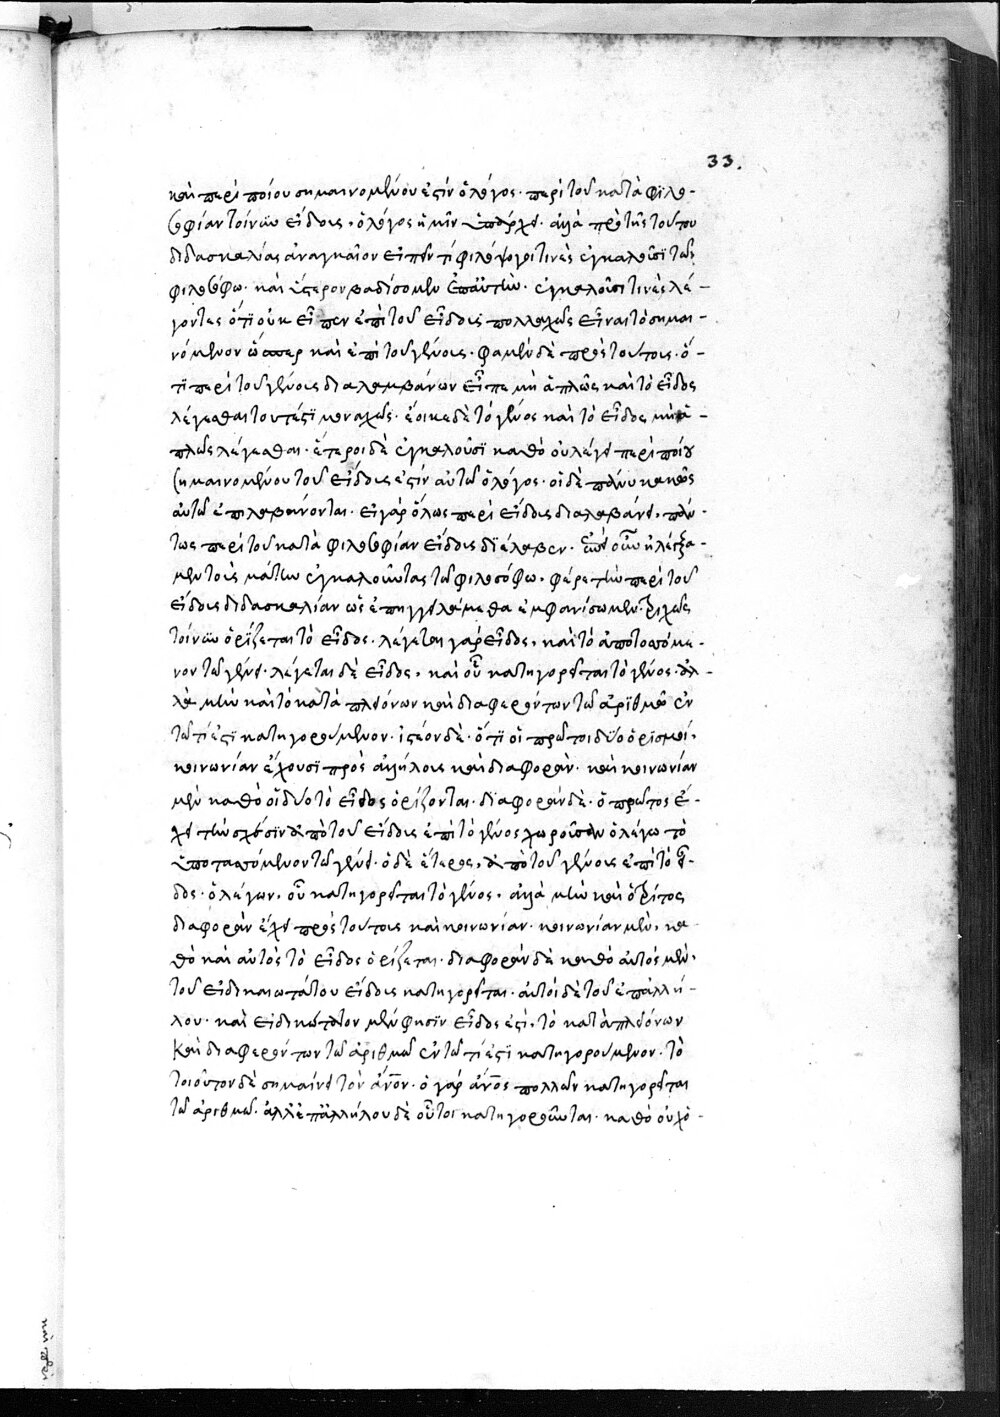 33.
καὶ περὶ ποίου σημαινομένου ἐστὶν ὁ λόγος· περὶ τοῦ κατὰ φιλο-
σοφίαν τοίνυν εἴδους, ὁ λόγος ἡμῖν ὑπάρχει· ἀλλὰ πρὸ τῆς τούτου
διδασκαλίας ἀναγκαῖον εἰπεῖν τί φιλόψογοί τινες ἐγκαλοῦσι τῶ
φιλοσόφω· καὶ ὕστερον βαδίσομεν ἐπ' αὐτήν· ἐγκαλοῦσί τινες λέ-
γοντες ὅτι οὐκ εἶπεν ἐπὶ τοῦ εἴδους πολλαχῶς εἶναι τὸ σημαι-
νόμενον ὥσπερ καὶ ἐπὶ τοῦ γένους· φαμὲν δὲ πρὸς τούτοις· ὅ-
τι περὶ τοῦ γένους διαλαμβάνων εἶπε μὴ ἁπλῶς καὶ τὸ εἶδος
λέγεσθαι τουτέστι μοναχῶς· ἔοικε δὲ τὸ γένος καὶ τὸ εἶδος μὴ ἁ-
πλῶς λέγεσθαι· ἕτεροι δὲ ἐγκαλοῦσι καθὸ οὐ λέγει περὶ ποίου
σημαινομένου τοῦ εἴδους ἐστὶν αὐτῶ ὁ λόγος· οἱ δὲ πάνυ κακῶς
αὐτῶ ἐπιλαμβάνονται· εἰ γὰρ ὅλως περὶ εἴδους διαλαμβάνει, πάν-
τως περὶ τοῦ κατὰ φιλοσοφίαν εἴδους διέλαβεν· ἐπεὶ οὖν ἠλέγξα-
μεν τοὺς μάτην ἐγκαλοῦντας τῶ φιλοσόφω, φέρε τὴν περὶ τοῦ
εἴδους διδασκαλίαν ὡς ἐπηγγειλάμεθα ἐμφανίσωμεν· τριχῶς
τοίνυν ὁρίζεται τὸ εἶδος· λέγεται γὰρ εἶδος, καὶ τὸ ὑποταττόμε-
νον τῶ γένει· λέγεται δὲ εἶδος, καὶ οὗ κατηγορεῖται τὸ γένος· ἀλ-
λὰ μὴν καὶ τὸ κατὰ πλειόνων καὶ διαφερόντων τῶ ἀριθμῶ ἐν
τῶ τί ἐστι κατηγορούμενον· ἰστέον δὲ· ὅτι οἱ πρῶτοι δύο ὁρισμοί,
κοινωνίαν ἔχουσι πρὸς ἀλλήλους καὶ διαφοράν· καὶ κοινωνίαν
μὲν καθὸ οἱ δύο τὸ εἶδος ὁρίζονται· διαφορὰν δὲ· ὁ πρῶτος ἔ-
χει τὴν σχέσιν ἀπὸ τοῦ εἴδους ἐπὶ τὸ γένος χωροῦσαν ὁ λέγω τὸ
ὑποταττόμενον τῶ γένει· ὁ δὲ ἕτερος, ἀπὸ τοῦ γένους ἐπὶ τὸ εἶ-
δος· ὁ λέγων, οὗ κατηγορεῖται τὸ γένος, ἀλλὰ μὴν καὶ ὁ τρίτος
διαφορὰν ἔχει πρὸς τούτους καὶ κοινωνίαν· κοινωνίαν μὲν, κα-
θὸ καὶ αὐτὸς τὸ εἶδος ὁρίζεται· διαφορὰν δὲ καθὸ αὐτὸς μὲν,
τοῦ εἰδικωτάτου εἴδους κατηγορεῖται· αὐτοὶ δὲ τοῦ ἐπαλλή-
λου· καὶ εἰδικώτατον μὲν φησὶν εἶδος ἐστὶ, τὸ κατὰ πλειόνων
καὶ διαφερόντων τῶ ἀριθμῶ ἐν τῶ τί ἐστι κατηγορούμενον· τὸ
τοιοῦτον δὲ σημαίνει τὸν ἄνον· ὁ γὰρ ἄνος πολλῶν κατηγορεῖται
τῶ ἀριθμῶ· ἀλλ' ἐπαλλήλου δὲ οὗτοι κατηγοροῦνται· καθὸ οὐχ ὁ-